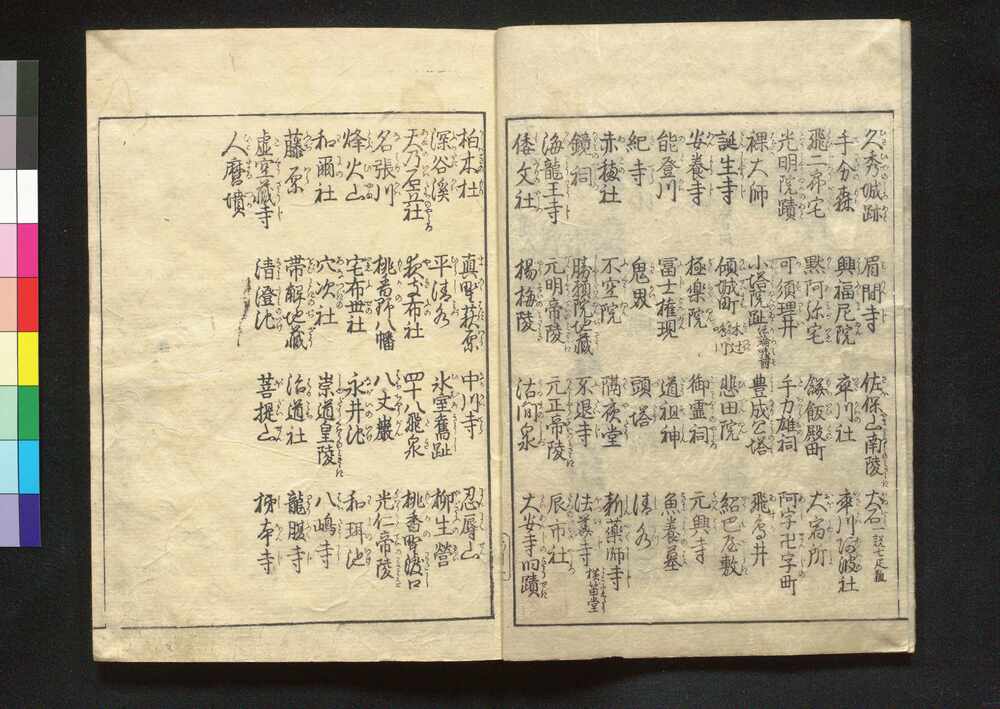 久秀城跡 眉間寺 佐保山南陵 大石
千分森 興福尼院 率川社 率川阿波社
飛二郎宅 黙阿弥宅 餅飯殿町 大宿所
光明院蹟 可須理井 手力雄祠 阿字卍字町
裸大師 小塔院趾 豊成公塔 飛鳥井
誕生寺 傾城町 木辻 鳴川 悲田院 紹巴屋敷
安養寺 極楽院 御霊祠 元興寺
能登川 冨士権現 道祖神 魚養墓
紀寺 鬼界 頭塔 清水
赤穂社 不空院 隔夜堂 新薬師寺
鏡祠 腸類地蔵 不退寺 法華寺 横笛堂
海龍王寺 元明帝陵 元正帝陵 辰市社
倭文社 楊梅陵 沽間泉 大安寺旧蹟
柏木杜 真野萩原 中川寺 忍辱山
深谷溪 平清水 氷室舊趾 柳生營
天乃石立社 四十八飛泉 桃香野渡口
名張川 桃香野八幡 八丈巖 光仁帝陵
烽火山 宅布世社 永井池 和珥池
和爾社 穴次社 崇道皇陵 八嶋寺
藤原 帯解地蔵 治道社 龍腹寺
虚空蔵寺 清澄池 菩提山 柿本寺
人麿墳